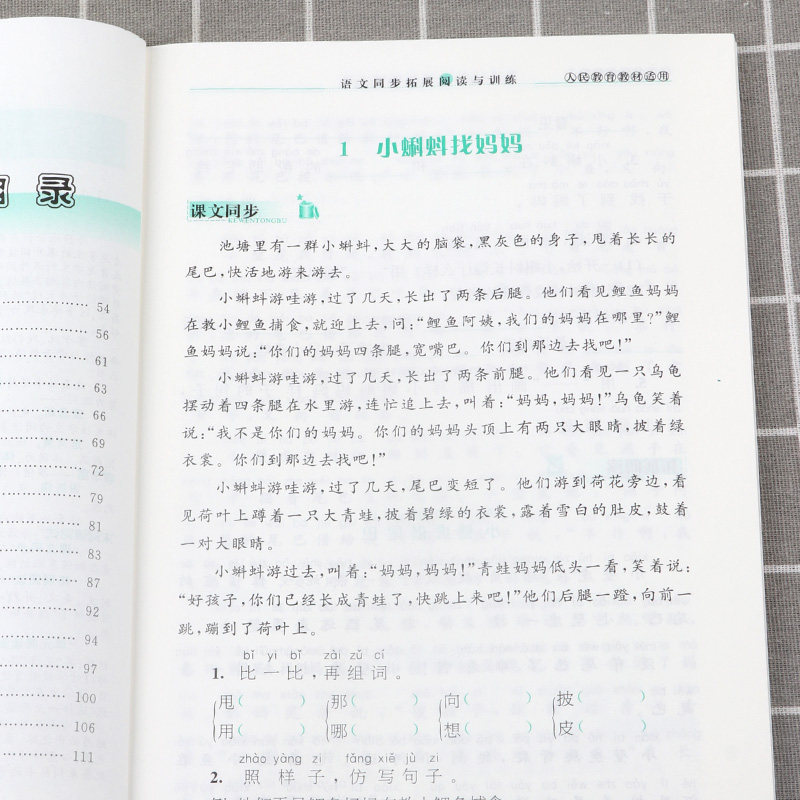 录
54
56
61
63
66
69
72
79
81
83
87
92
94
97
100
106
111
语文同步拓展阅读与训练
人民教育教材适用
1 小蝌蚪找妈妈
课文同步
KEWENTONGBU
池塘里有一群小蝌蚪,大大的脑袋,黑灰色的身子,甩着长长的
尾巴,快活地游来游去。
小蝌蚪游哇游,过了几天,长出了两条后腿。他们看见鲤鱼妈妈
在教小鲤鱼捕食,就迎上去,问:“鲤鱼阿姨,我们的妈妈在哪里?”鲤
鱼妈妈说:“你们的妈妈四条腿,宽嘴巴。你们到那边去找吧!”
小蝌蚪游哇游,过了几天,长出了两条前腿。他们看见一只乌龟
摆动着四条腿在水里游,连忙追上去,叫着:“妈妈,妈妈!”乌龟笑着
说:“我不是你们的妈妈。你们的妈妈头顶上有两只大眼睛,披着绿
衣裳。你们到那边去找吧!”
小蝌蚪游哇游,过了几天,尾巴变短了。他们游到荷花旁边,看
见荷叶上蹲着一只大青蛙,披着碧绿的衣裳,露着雪白的肚皮,鼓着
一对大眼睛。
小蝌蚪游过去,叫着:“妈妈,妈妈!”青蛙妈妈低头一看,笑着说:
“好孩子,你们已经长成青蛙了,快跳上来吧!”他们后腿一蹬,向前一
跳,蹦到了荷叶上。
bǐ yi bǐ zài zǔ cí
1. 比一比,再组词。
甩( ) 那( ) 向( ) 披( )
用( ) 哪( ) 想( ) 皮( )
zhào yàng zi fǎng xiě jù zi
2. 照样子,仿写句子。